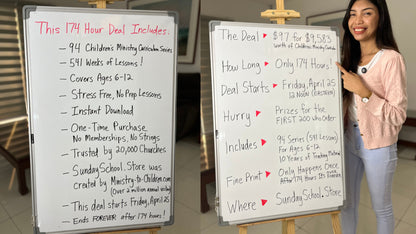 This 174 Hour Deal Includes:
– 94 Children's Ministry Curriculum Series
– 541 Weeks of Lessons!
– Covers Ages 6-12
– Stress Free, No Prep Lessons
– Instant Download
– One-Time Purchase
No Memberships, No Strings
– Trusted by 20,000 Churches
– Sunday School.Store was
created by Ministry-to-Children.com
(Over 2 million annual visitors)
– This deal starts Friday, April 25
– Ends FOREVER after 174 hours!
The Deal ▶ $97 for $9,583
worth of Children's Ministry Curricula
How Long ▶ Only 174 Hours!
Deal Starts ▶ Friday, April 25
12 NOON (EASTERN)
Hurry ▶ Prizes for the
FIRST 200 who order
Includes ▶ 94 Series (541 Lessons)
For Ages 6-12
10 Years of Teaching Material
Fine Print ▶ Only Happens Once
Where ▶ Sunday School.Store